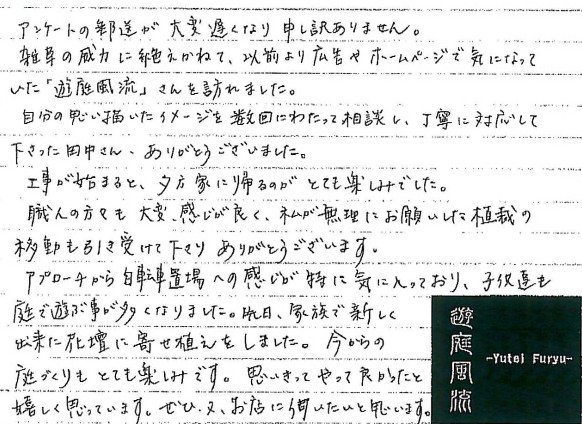 アンケートの郵送が大変遅くなり申し訳ありません。
雑草の威力に絶えかねて、以前より広告やホームページで気になって
いた「遊庭風流」さんを訪れました。
自分の思い描いたイメージを数回にわたって相談し、丁寧に対応して
下さった田中さん、ありがとうございました。
工事が始まると、夕方家に帰るのがとても楽しみでした。
職人の方々も大変感じが良く、私が無理にお願いした植栽の
移動も引き受けて下さりありがとうございます。
アプローチから自転車置場への感じが特に気に入っており、子供達も
庭で遊ぶ事が多くなりました。先日、家族で新しく
出来た花壇に寄せ植えをしました。今からの
庭づくりもとても楽しみです。思いきってやって良かったと
嬉しく思っています。ぜひ、又、お店に伺いたいと思います。
遊庭風流
-Yutei Furyu-